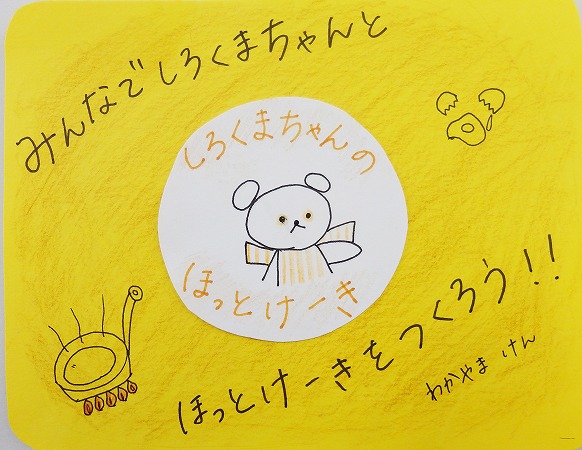 みんなでしろくまちゃんと
しろくまちゃんの
ほっとけーき
ほっとけーきをつくろう!!
わかやま けん